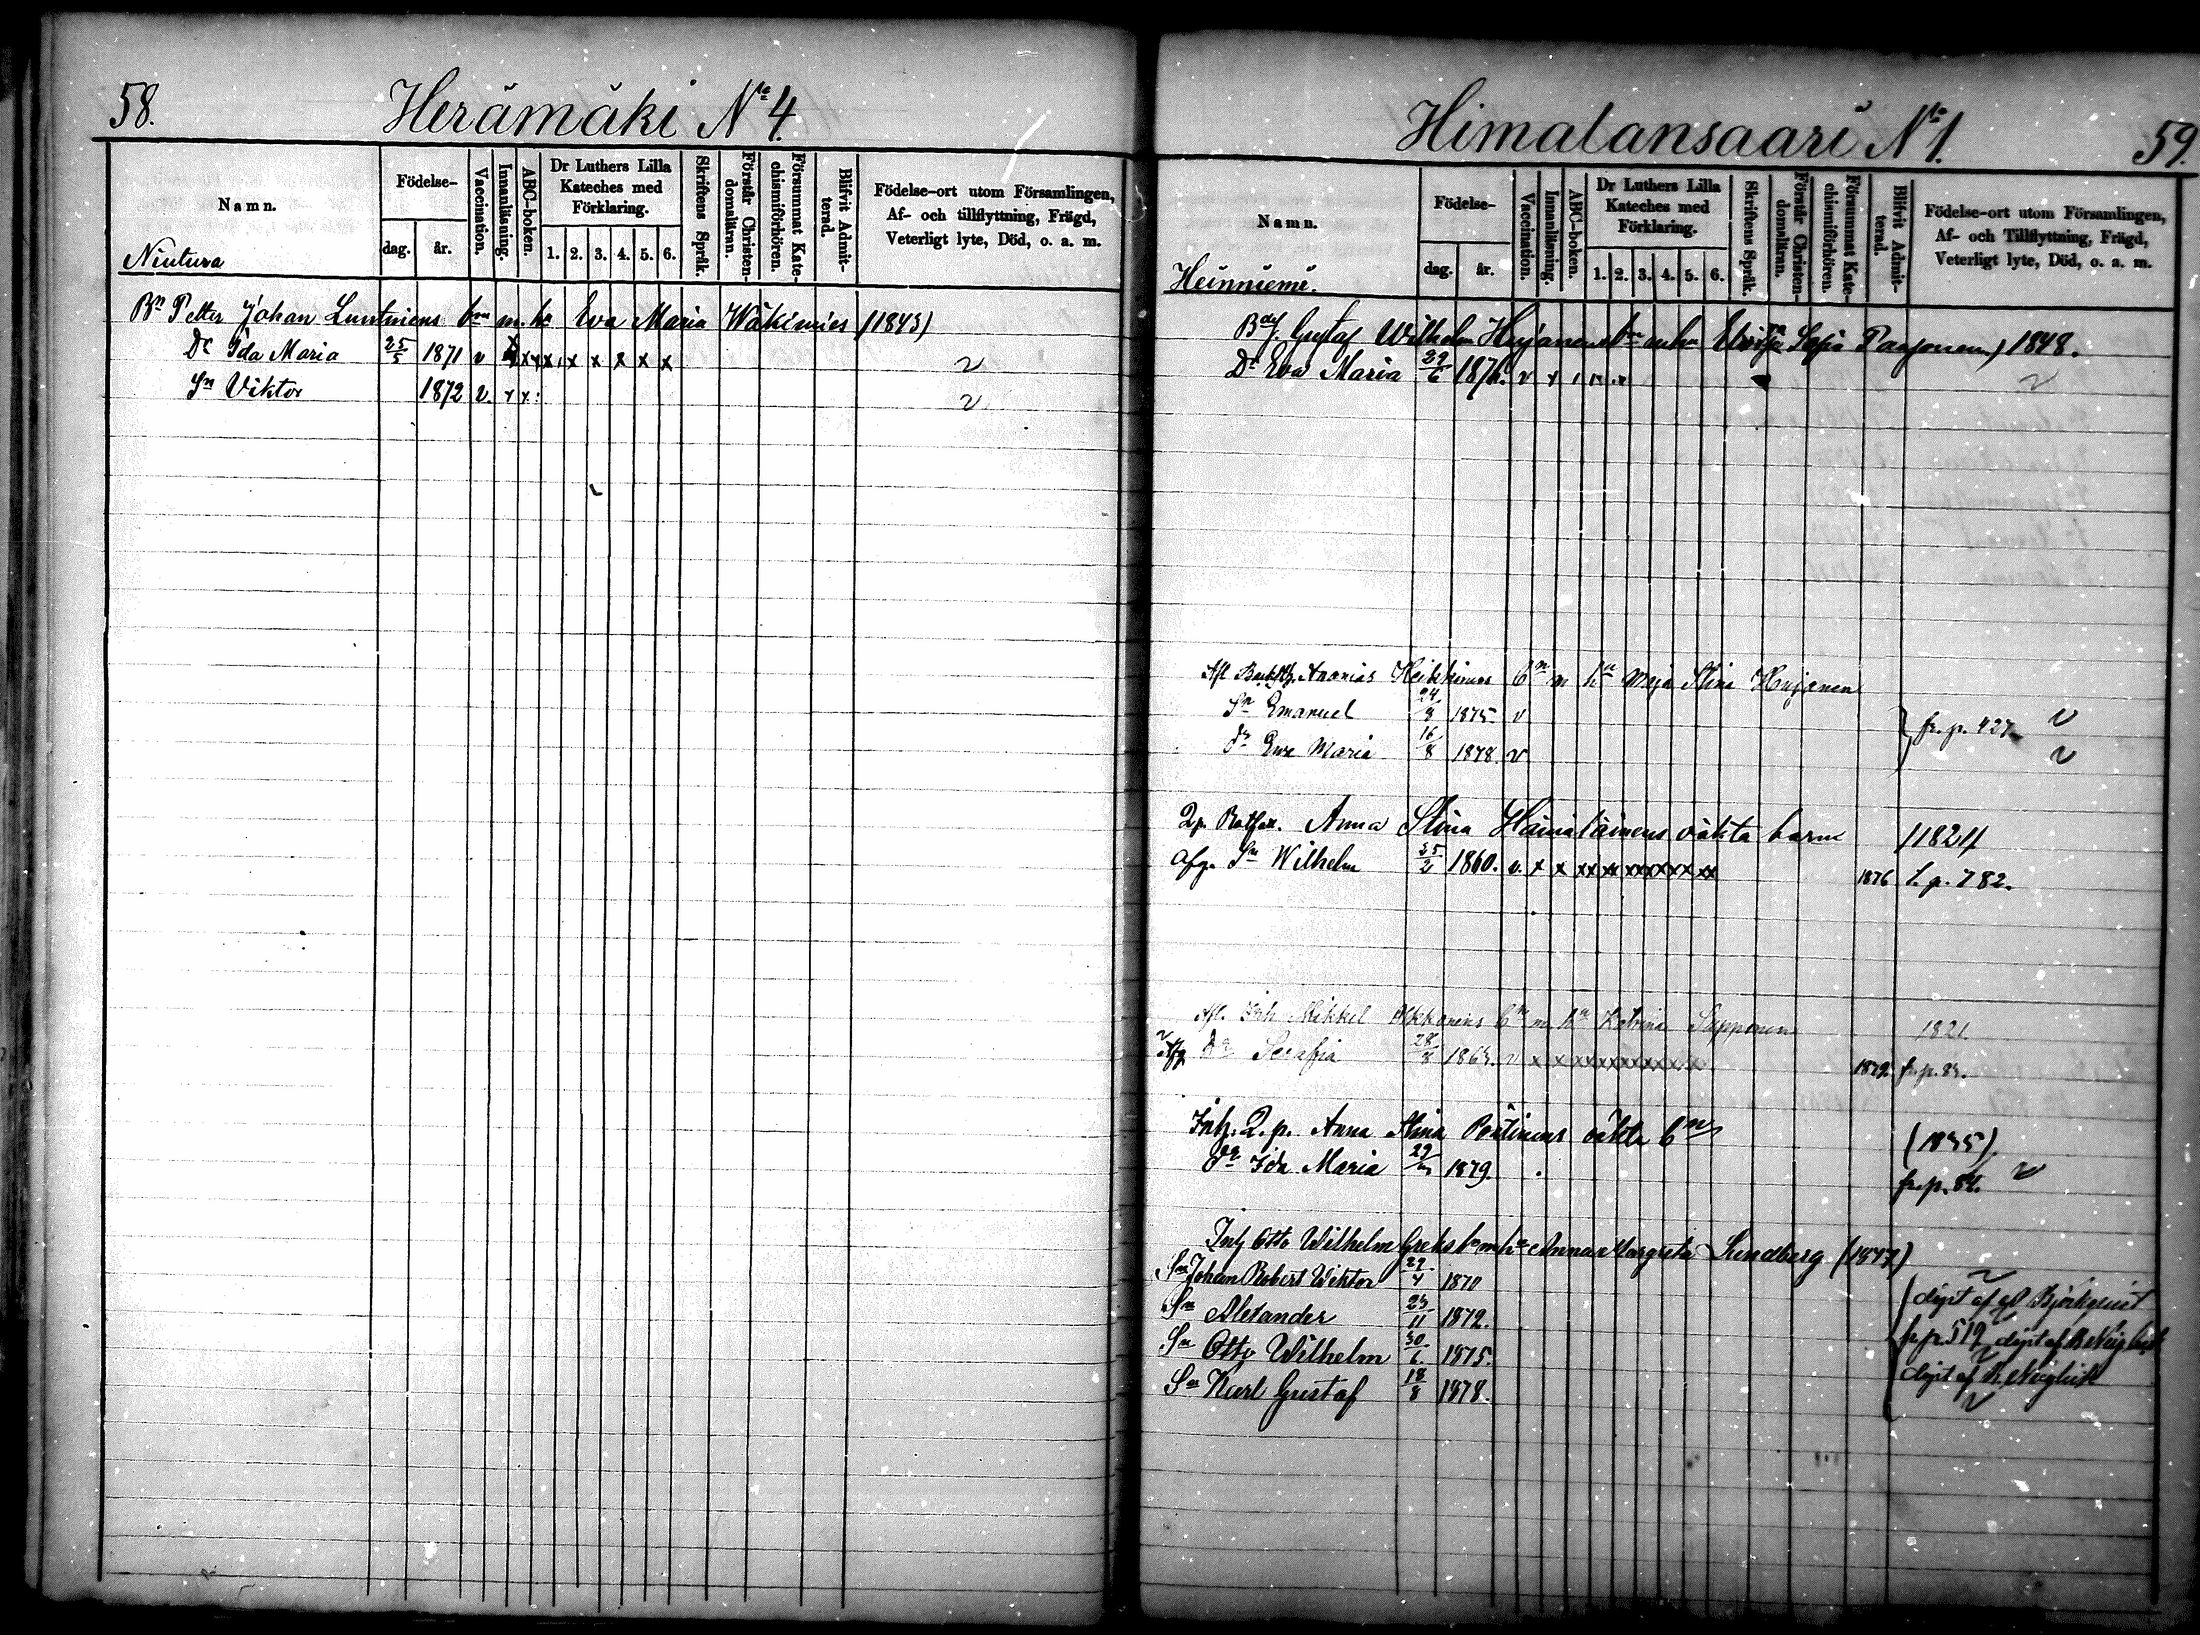 58.
Herämäki No 4.
Namn.
Födelse-
dag. år.
Vaccination.
Innanläsning.
ABC-boken.
Dr Luthers Lilla
Kateches med
Förklaring.
1. 2. 3. 4. 5. 6.
Skriftens Språk.
Förstår Christen-
domsläran.
Försummat Kate-
chismiförhören.
Blifvit Admit-
terad.
Födelse-ort utom Församlingen,
Af- och tillflyttning, Frägd,
Veterligt lyte, Död, o. a. m.
Niutura
Bn Petter Johan Luntniens bn m. ha Eva Maria Wäkimies (1843)
Dr Ida Maria 25/5 1871 v x x x x x x x x x v
Sn Viktor 1872 v. x x v
Himalansaari No 1.
59.
Namn.
Födelse-
dag. år.
Vaccination.
Innanläsning.
ABC-boken.
Dr Luthers Lilla
Kateches med
Förklaring.
1. 2. 3. 4. 5. 6.
Skriftens Språk.
Förstår Christen-
domsläran.
Försummat Kate-
chismiförhören.
Blifvit Admit-
terad.
Födelse-ort utom Församlingen,
Af- och Tillflyttning, Frägd,
Veterligt lyte, Död, o. a. m.
Heinniemi.
Gustaf Wilhelm Hujanens bn m ha Sofia Paajonen) 1848.
Dr Eva Maria 29/6 1876. v v
Afl. Ananias Heikkinens bn m ha Maja Stina Hujanen
Sn Emanuel 24/8 1875. v } fr. p. 427 v
Dr Eva Maria 16/8 1878. v v
Qp. Anna Stina Hämäläinens oäkta barn (1824)
Afg. Sn Wilhelm 25/2 1860. v. x x xx xx xx xx xx xx 1876 t. p. 782.
Afl. Inh. Mikkel Ukkonens bn m ha Katrina Supponen 1821
Afg. Dr Serafia 28/8 1863. v x x x x x x x x x x 1879. fr. p. 83.
Inh. Q. p. Anna Stina Pöntinens oäkta bn (1835)
Dr Ida Maria 29/ 1879. fr. p. 84. v
Inh Otto Wilhelm Greks bn m ha Anna Margreta Sundberg (1847)
Sn Johan Robert Wiktor 29/4 1870 döpt af Björkqvist
Sn Alexander 23/11 1872. fr. p. 519 döpt af
Sn Otto Wilhelm 30/6. 1875. döpt af
Sn Karl Gustaf 18/8 1878. v